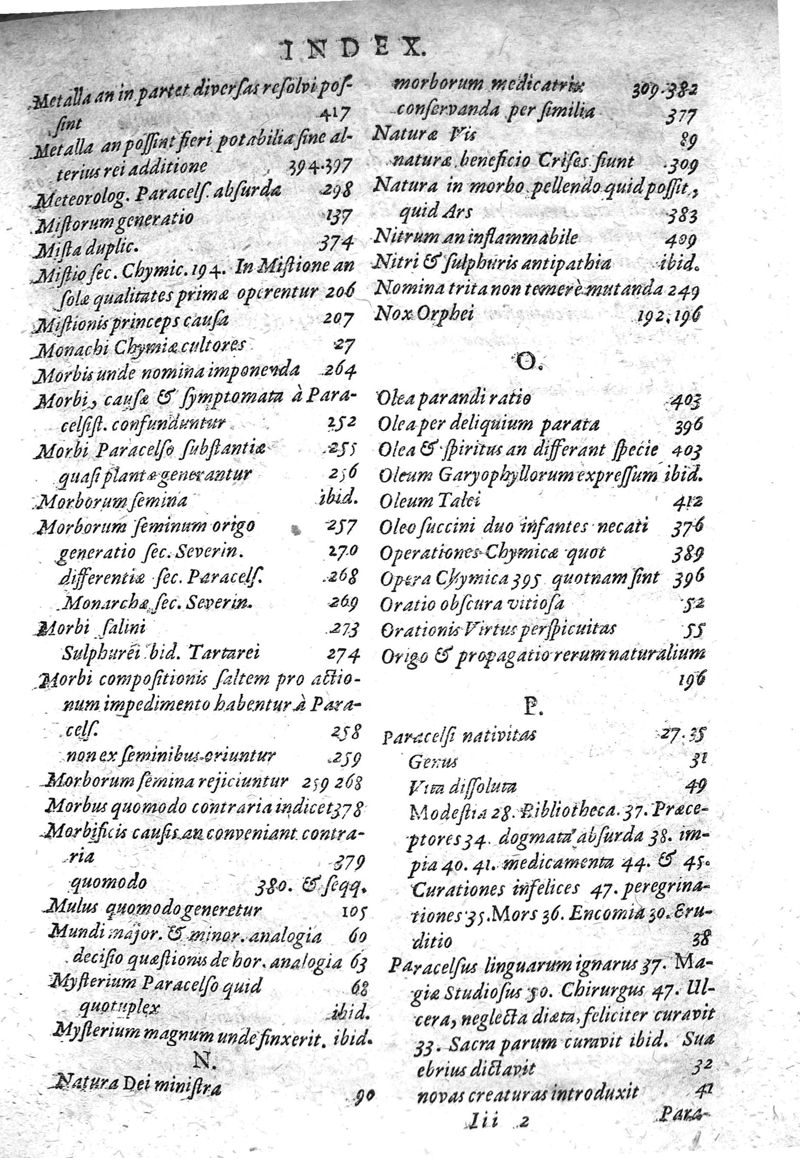 INDEX.
Metalla an in partet diversas resolvi pos-
sint 417
Metalla an possint fieri potabilia sine al-
terius rei additione 394.397
Meteorolog. Paracels. absurda 298
Mistorum generatio 137
Mista duplic. 374
Mistio sec. Chymic. 194. In Mistione an
solæ qualitates primæ operentur 206
Mistionis princeps causa 207
Monachi Chymiæ cultores 27
Morbis unde nomina imponenda 264
Morbi, causæ & symptomata à Para-
celsist. confunduntur 252
Morbi Paracelso substantiæ 255
quasi plantæ generantur 256
Morborum semina ibid.
Morborum seminum origo 257
generatio sec. Severin. 270
differentiæ sec. Paracels. 268
Monarchæ sec. Severin. 269
Morbi salini 273
Sulphurei bid. Tartarei 274
Morbi compositionis saltem pro actio-
num impedimento habentur à Para-
cels. 258
non ex seminibus oriuntur 259
Morborum semina rejiciuntur 259 268
Morbus quomodo contraria indicet 378
Morbificis causis an conveniant contra-
ria 379
quomodo 380. & seqq.
Mulus quomodo generetur 105
Mundi major. & minor. analogia 60
decisio quæstionis de hor. analogia 63
Mysterium Paracelso quid 68
quotuplex ibid.
Mysterium magnum unde finxerit. ibid.
N.
Natura Dei ministra 90
morborum medicatrix 309.382
conservanda per similia 377
Naturæ Vis 89
naturæ beneficio Crises fiunt 309
Natura in morbo pellendo quid possit,
quid Ars 383
Nitrum an inflammabile 409
Nitri & sulphuris antipathia ibid.
Nomina trita non temerè mutanda 249
Nox Orphei 192.196
O.
Olea parandi ratio 403
Olea per deliquium parata 396
Olea & spiritus an differant specie 403
Oleum Garyophyllorum expressum ibid.
Oleum Talci 412
Oleo succini duo infantes necati 376
Operationes Chymicæ quot 389
Opera Chymica 395 quotnam sint 396
Oratio obscura vitiosa 52
Orationis Virtus perspicuitas 55
Origo & propagatio rerum naturalium
196
P.
Paracelsi nativitas 27.35
Genus 31
Vita dissoluta 49
Modestia 28. Bibliotheca. 37. Præce-
ptores 34. dogmata absurda 38. im-
pia 40. 41. medicamenta 44. & 45.
Curationes infelices 47. peregrina-
tiones 35. Mors 36. Encomia 30. Eru-
ditio 38
Paracelsus linguarum ignarus 37. Ma-
giæ Studiosus 50. Chirurgus 47. Ul-
cera, neglecta diæta, feliciter curavit
33. Sacra parum curavit ibid. Sua
ebrius dictavit 32
novas creaturas introduxit 41
Iii 2 Para-